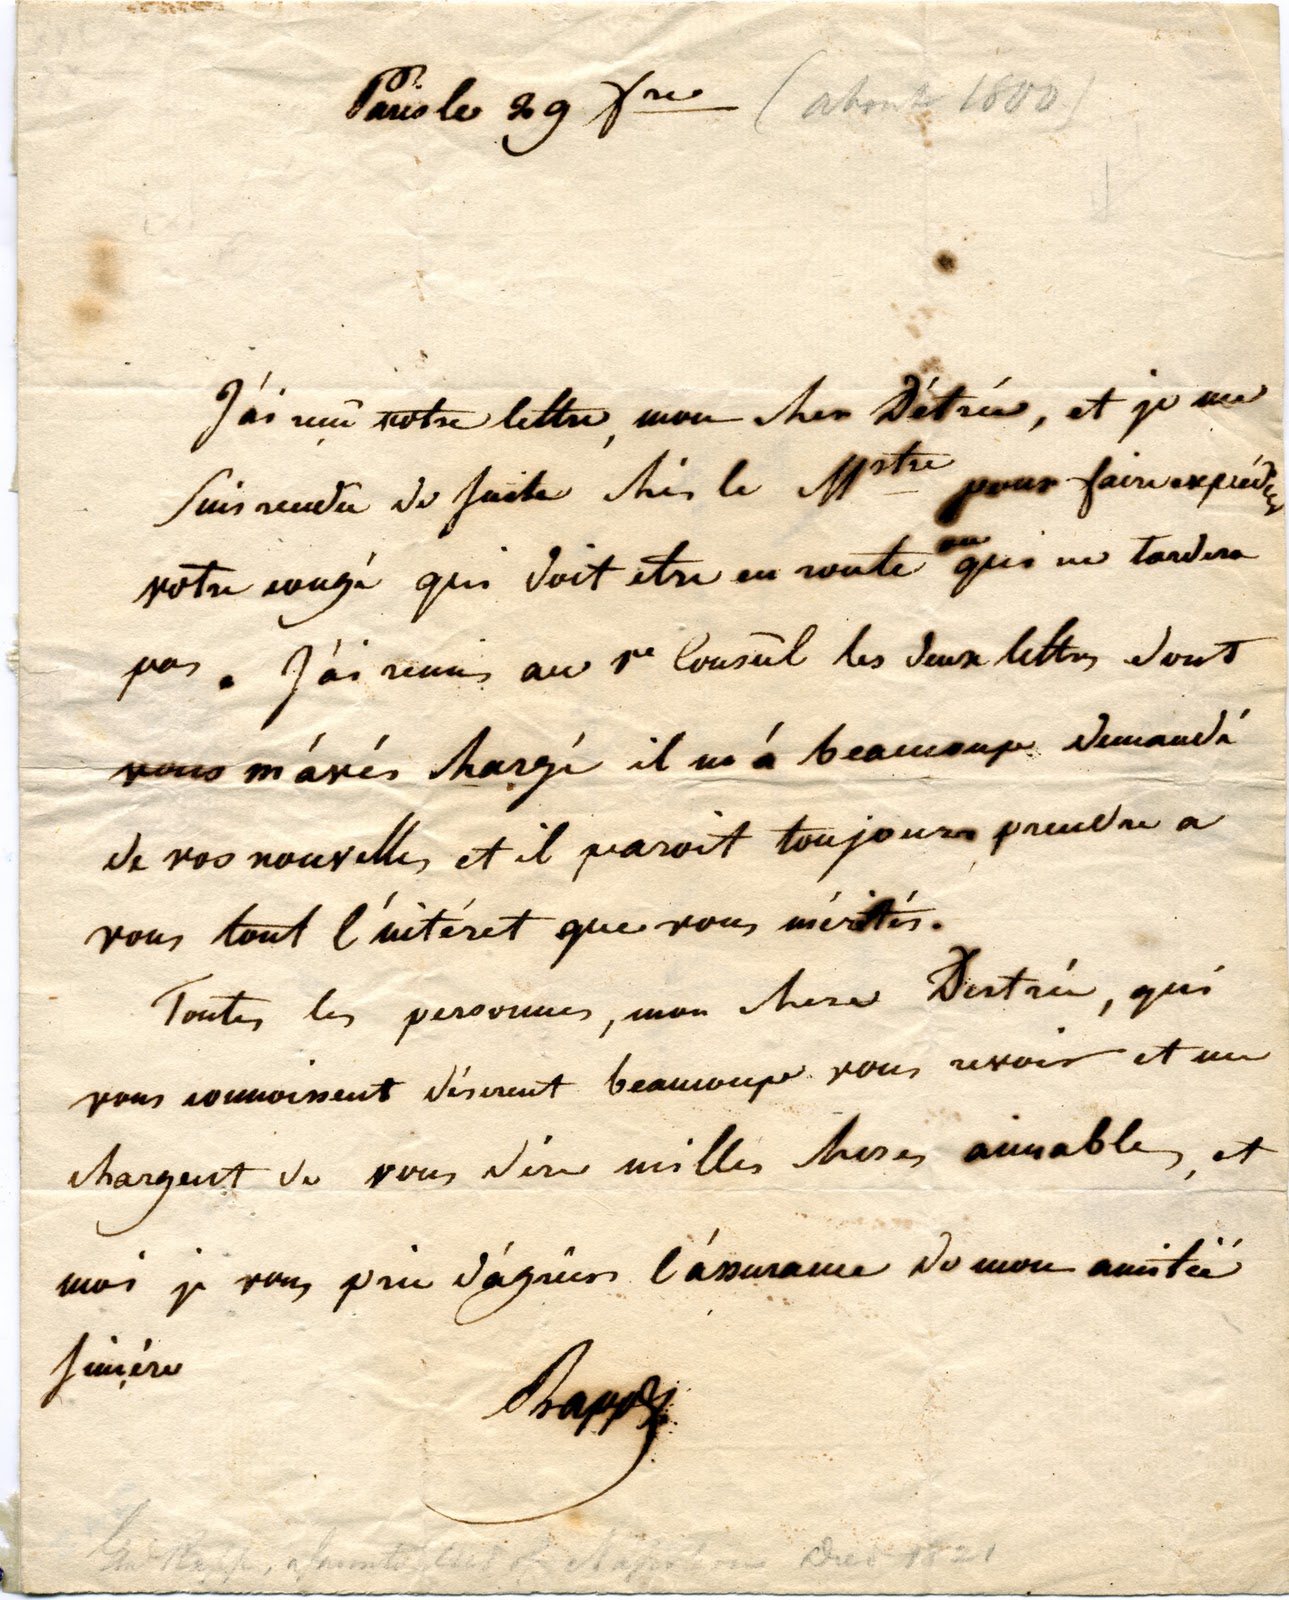 Paris le 29 fre (about 1800)
J'ai reçu votre lettre, mon cher Détrée, et je me
suis rendu de suite chés le Mstre pour faire expédier
votre congé qui doit etre en route ou qui ne tardera
pas. J'ai remis au 1er Consul les deux lettres dont
vous m'avés chargé il m'a beaucoupe demandé
de vos nouvelles et il paroit toujours prendre a
vous tout l'intéret que vous mérités.
Toutes les personnes, mon chere Destrée, qui
vous connoissent désirent beaucoupe vous revoir et me
chargent de vous dire milles choses aimables, et
moi je vous prie d'agréer l'assurance de mon amitié
sincére
Rapp
Genl Rapp, a favorite of Napoleon Died 1821